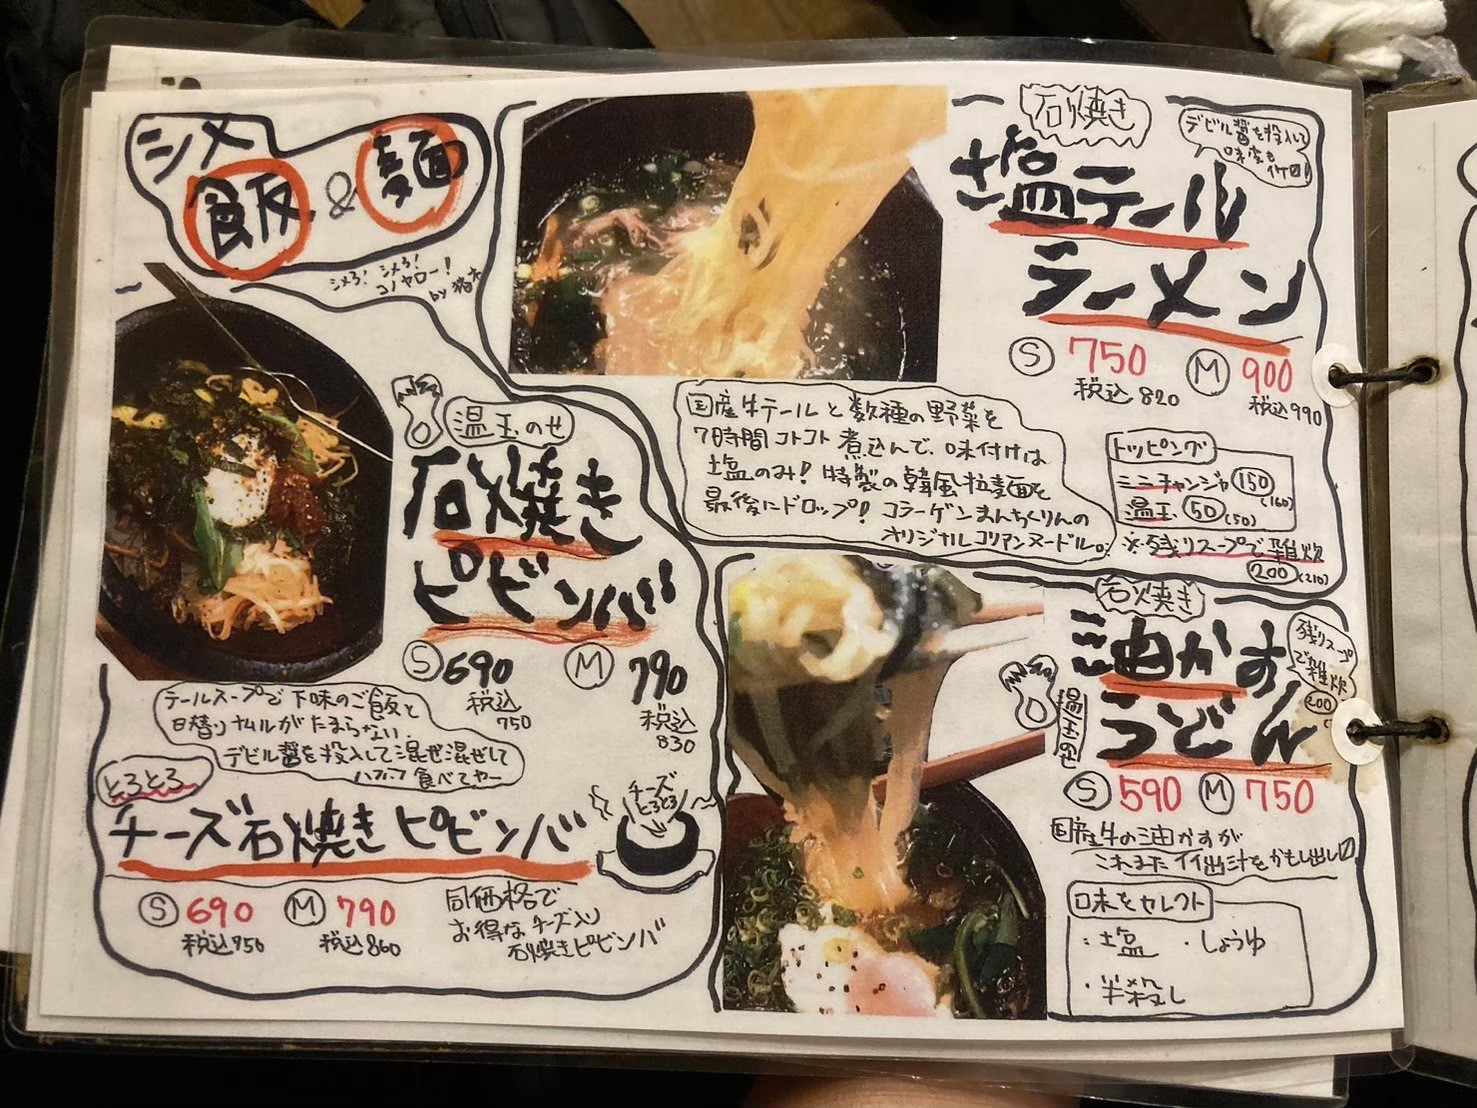 シメ
飯&麺
シメろ!シメろ!
コノヤロー!
by 猪木
石焼き
塩テール
ラーメン
デビル醤を投入して
味変も
イケ〼!
S 750 M 900
税込820 税込990
国産牛テールと数種の野菜を
7時間コトコト煮込んで、味付けは
塩のみ!特製の韓風拉麺を
最後にドロップ!コラーゲンまんちくりんの
オリジナルコリアンヌードル。
トッピング
ミニチャンジャ150(160)
温玉50(50)
※残りスープで雑炊
200(210)
温玉のせ
石焼き
ピビンバ
S 690 M 790
税込750 税込830
テールスープで下味のご飯と
日替りナムルがたまらない。
デビル醤を投入して混ぜ混ぜして
ハフハフ食べてやー
とろとろ
チーズ石焼きピビンバ
チーズ
とろとろ
S 690 M 790
税込750 税込860
同価格で
お得なチーズ入り
石焼きピビンバ
石焼き
油かす
うどん
温玉のせ
残りスープ
で雑炊
200
S 590 M 750
国産牛の油かすが
これまたイイ出汁をかもし出し〼
味をセレクト
・塩 ・しょうゆ
・半殺し